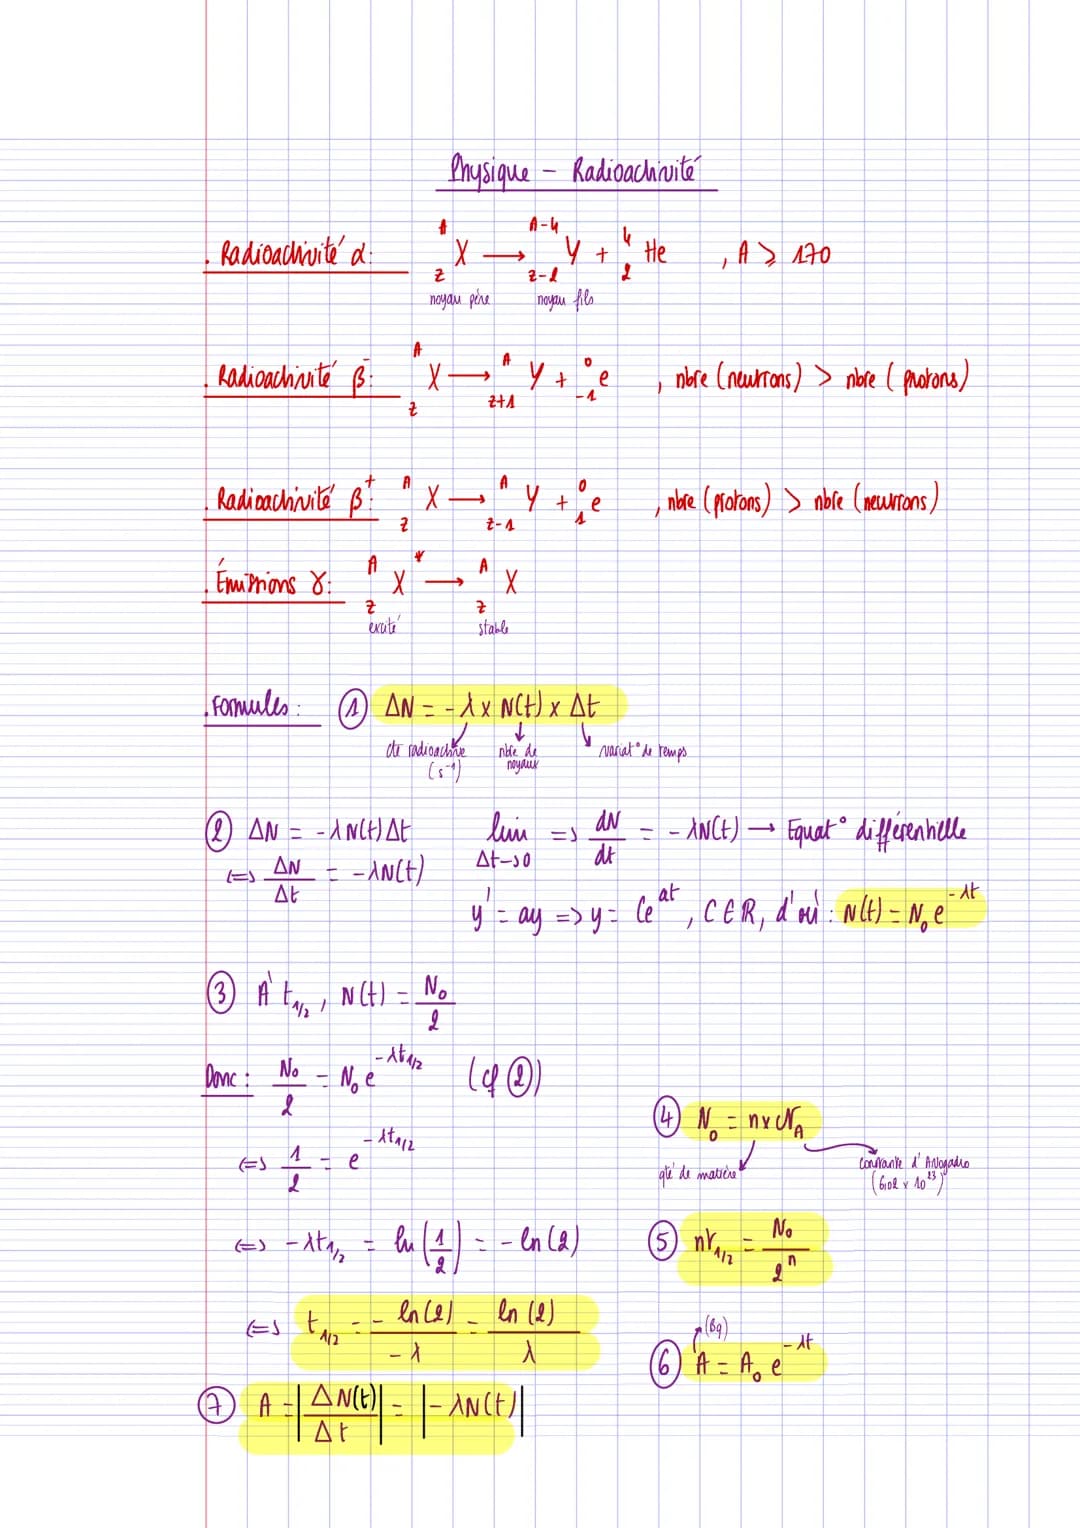 Physique - Radioactivité
. Radioactivité α: ᴬ_Z X → ᴬ⁻⁴_Z-2 Y + ⁴₂ He , A ⩾ 170
noyau père noyau fils
. Radioactivité β⁻: ᴬ_Z X → ᴬ_Z+1 Y + ⁰₋₁ e , nbre (neutrons) > nbre (protons)
. Radioactivité β⁺: ᴬ_Z X → ᴬ_Z-1 Y + ⁰₁ e , nbre (protons) > nbre (neutrons)
. Émissions γ: ᴬ_Z X* → ᴬ_Z X
excité stable
. Formules : ① ΔN = -λ x N(t) x Δt
cte radioactive (s⁻¹)
nbre de noyaux
variat° de temps
② ΔN = -λN(t)Δt
<=> ΔN/Δt = -λN(t)
lim Δt->0 => dN/dt = -λN(t) → Equat° différentielle
y' = ay => y = Ce^at , C∈R, d'où : N(t) = N₀ e^-λt
③ À t₁/₂ , N(t) = N₀/2
Donc : N₀/2 = N₀ e^-λt₁/₂ (cf ②)
<=> 1/2 = e^-λt₁/₂
<=> -λt₁/₂ = ln(1/2) = -ln(2)
<=> t₁/₂ = - ln(2)/-λ = ln(2)/λ
④ N₀ = n x N_A
qté de matière
constante d'Avogadro
(6,02 x 10²³)
⑤ nt₁/₂ = N₀/2ⁿ
(Bq)
⑥ A = A₀ e^-λt
⑦ A = |ΔN(t)/Δt| = |-λN(t)|